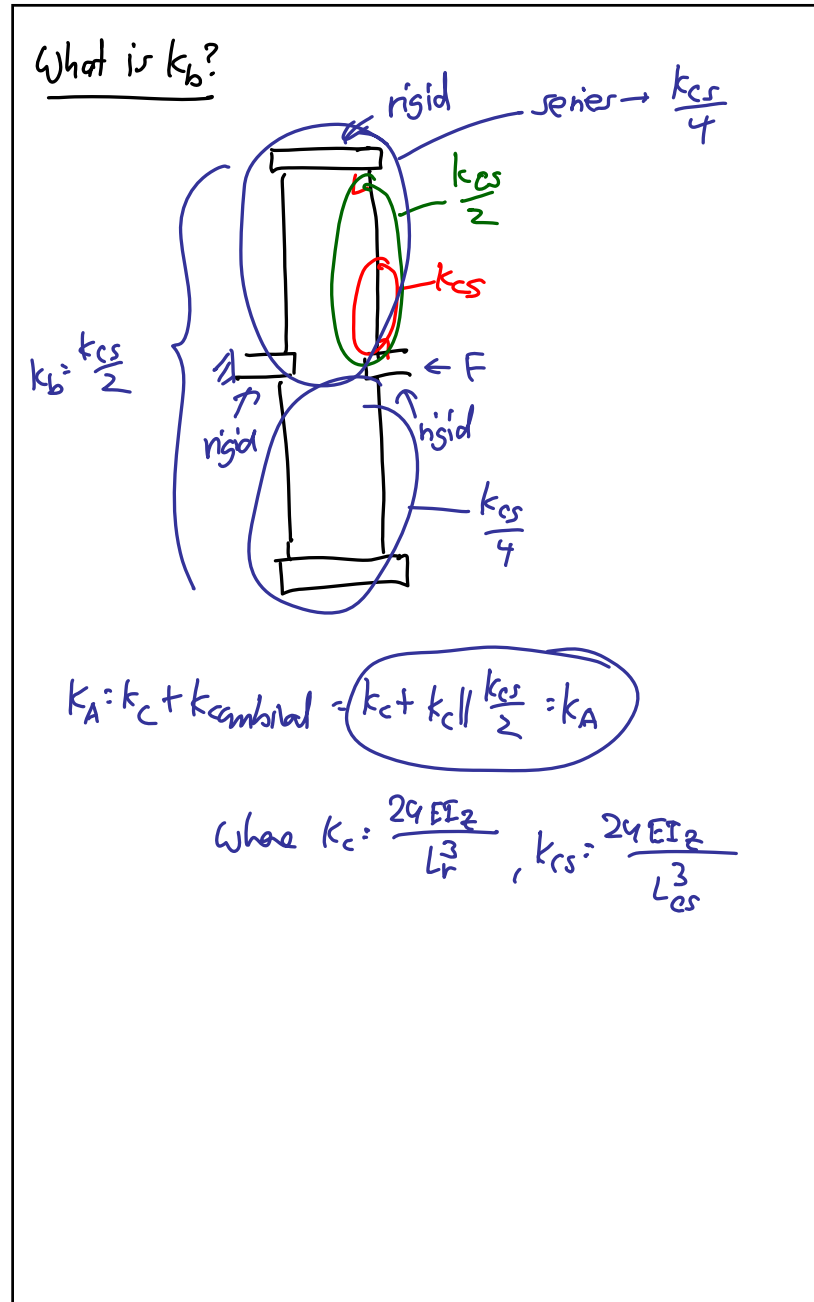 What is k_b?
rigid
series → k_cs/4
k_cs/2
k_cs
k_b = k_cs/2
← F
rigid
rigid
k_cs/4
k_A = k_c + k_combined = k_c + k_c || k_cs/2 = k_A
where k_c = 24EI_z/L_r^3 , k_cs = 24EI_z/L_cs^3